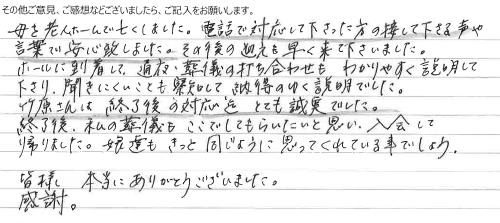 その他ご意見、ご感想などございましたら、ご記入をお願いします。
母を老人ホームで亡くしました。電話で対応して下さった方の接して下さる声や
言葉で安心致しました。その後の迎えも早く来て下さいました。
ホールに到着して、通夜・葬儀の打ち合わせも わかりやすく説明して
下さり、聞きにくいことも察知して納得のゆく説明でした。
竹原さんは 終了後の対応も とても誠実でした。
終了後、私の葬儀も ここでしてもらいたいと思い、入会して
帰りました。娘達も きっと同じように思ってくれている事でしょう。
皆様 本当にありがとうございました。
感謝。